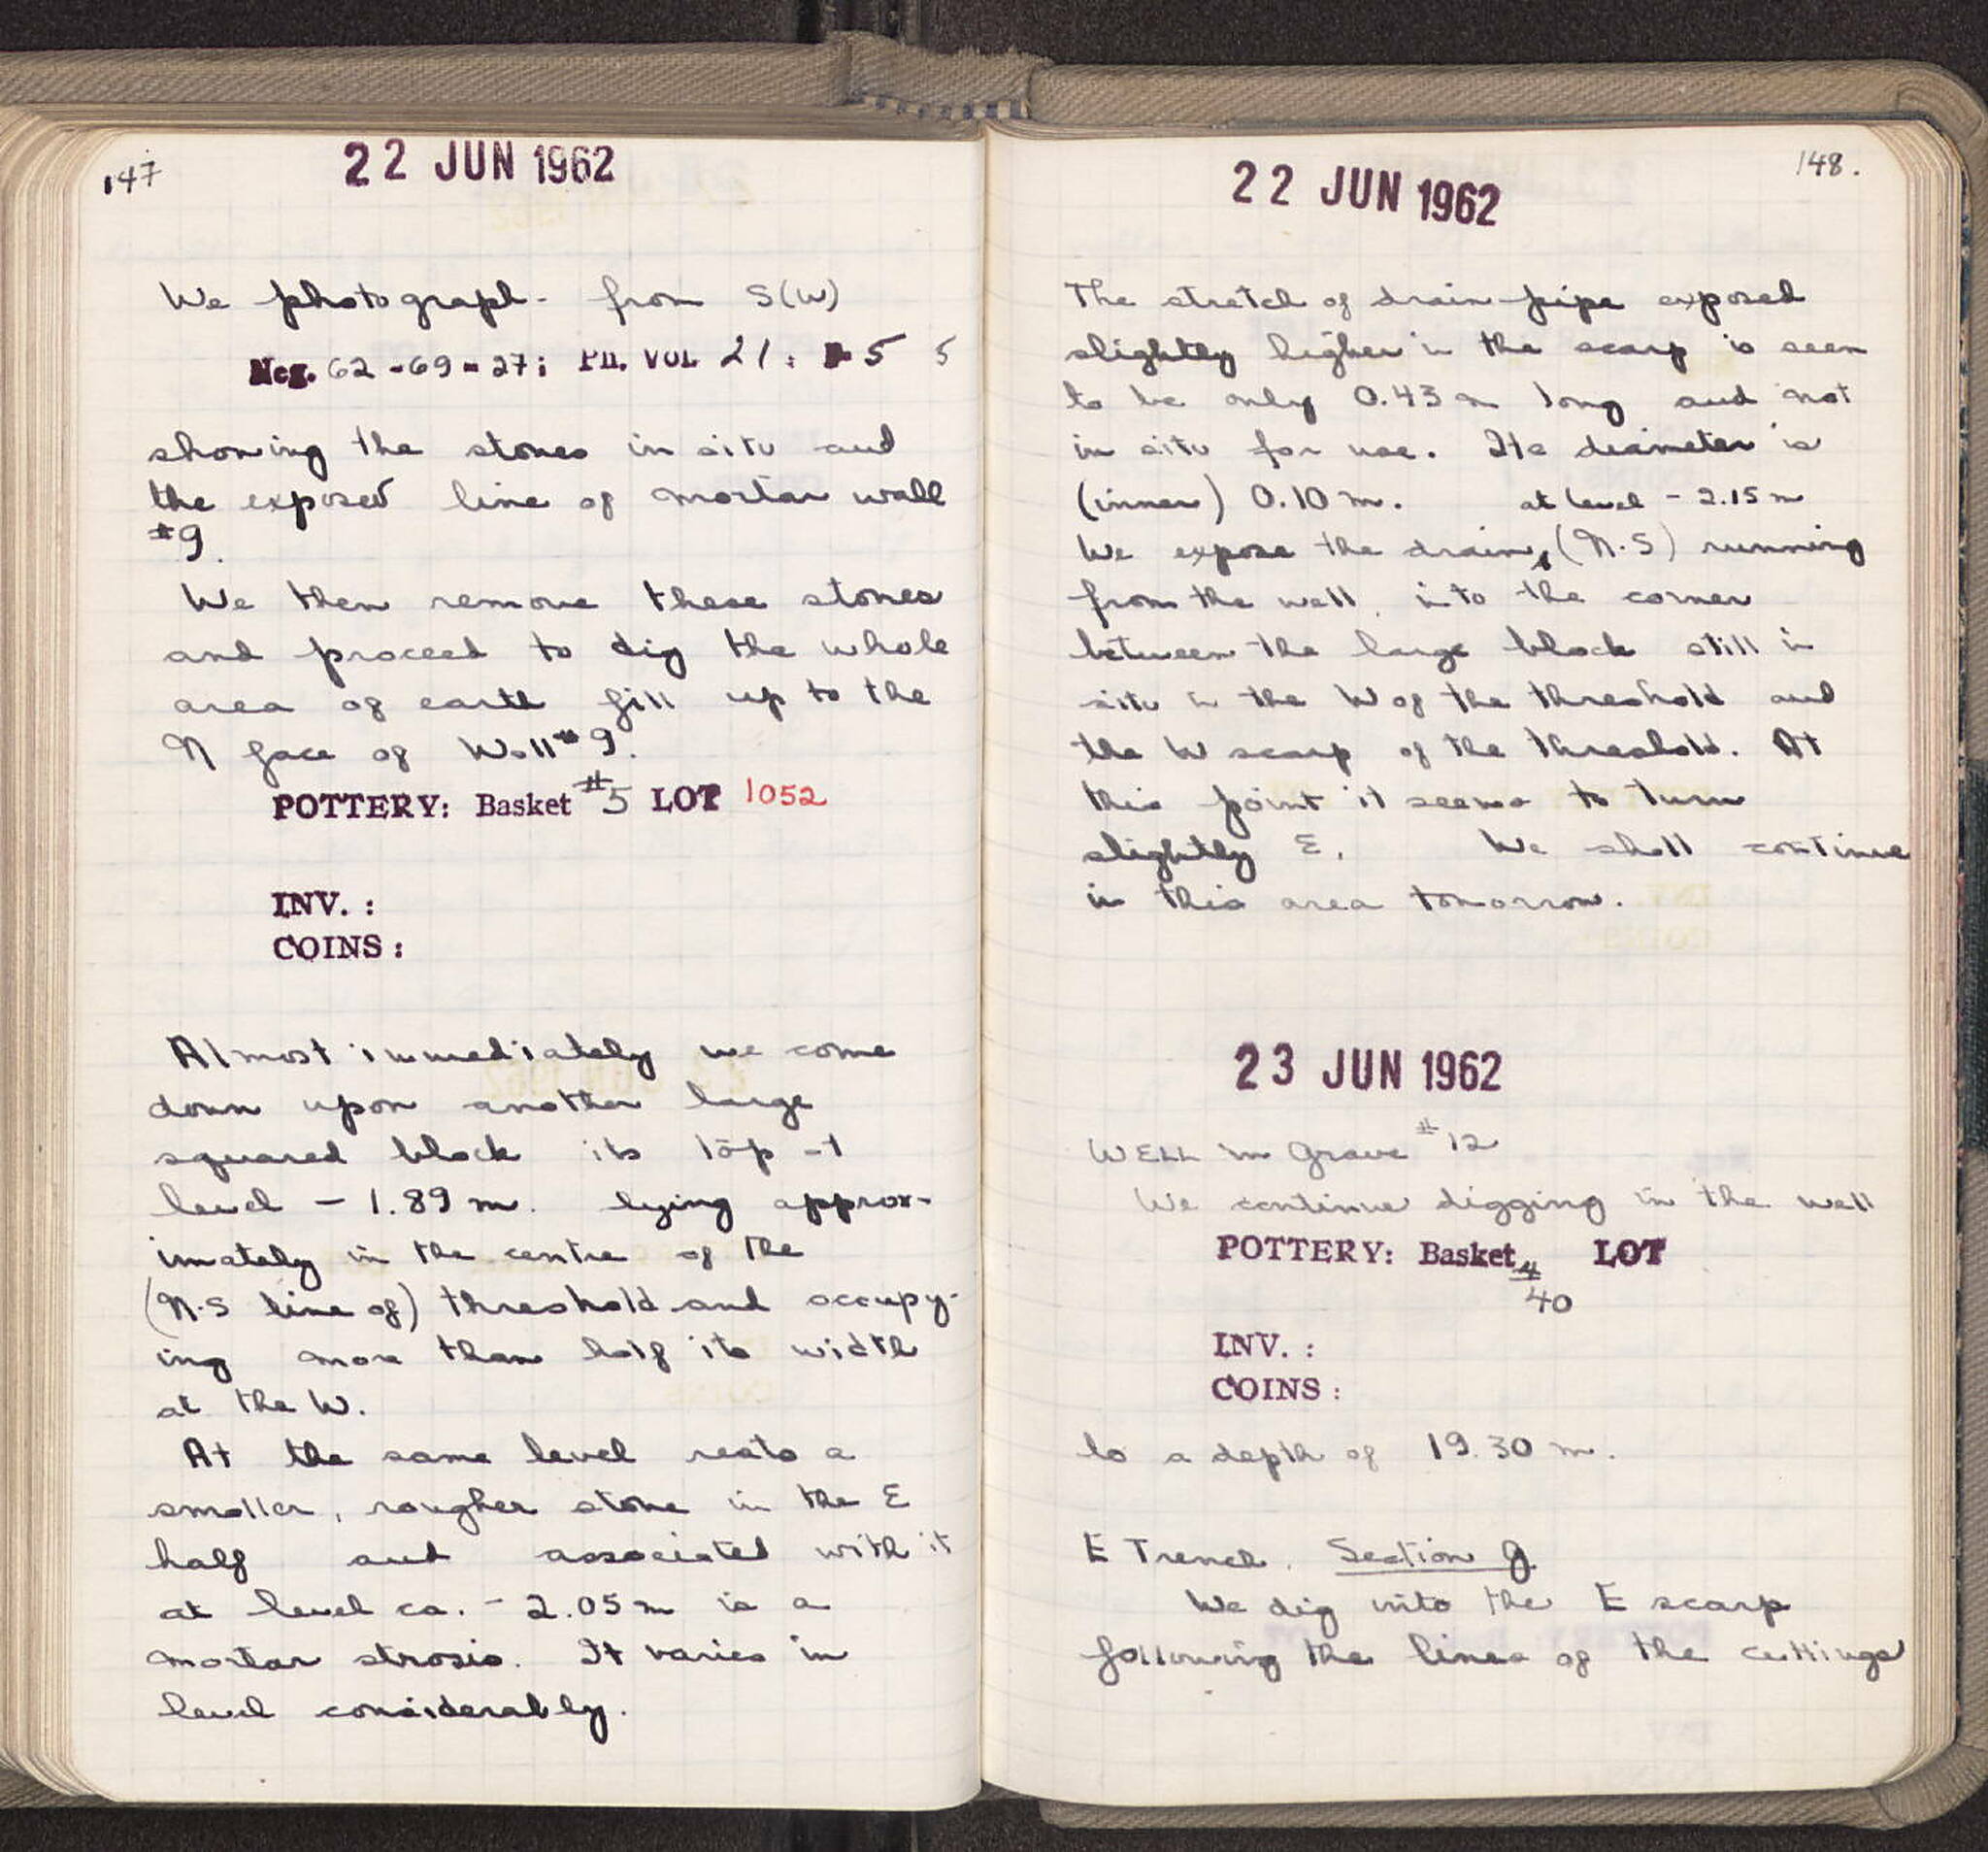 147
22 JUN 1962
We photograph - from S(W)
Neg. 62-69-27; Ph. Vol 21: p 5 5
showing the stones in situ and
the exposed line of mortar wall
#9.
We then remove these stones
and proceed to dig the whole
area of earth fill up to the
N face of Wall #9.
POTTERY: Basket #5 LOT 1052
INV. :
COINS :
Almost immediately we come
down upon another large
squared block its top at
level - 1.89 m. lying approx-
imately in the centre of the
(N-S line of) threshold and occupy-
ing more than half its width
at the W.
At the same level rests a
smaller, rougher stone in the E
half and associated with it
at level ca. - 2.05 m is a
mortar strosis. It varies in
level considerably.
148.
22 JUN 1962
The stretch of drain-pipe exposed
slightly higher in the scarp is seen
to be only 0.43 m long and not
in situ for use. Its diameter is
(inner) 0.10 m. at level - 2.15 m
We expose the drain, (N-S) running
from the well, into the corner
between the large block still in
situ in the W of the threshold and
the W scarp of the threshold. At
this point it seems to turn
slightly E. We shall continue
in this area tomorrow.
23 JUN 1962
WELL in Grave #12
We continue digging in the well
POTTERY: Basket # LOT
40
INV. :
COINS :
to a depth of 19.30 m.
E Trench. Section J
We dig into the E scarp
following the lines of the cuttings